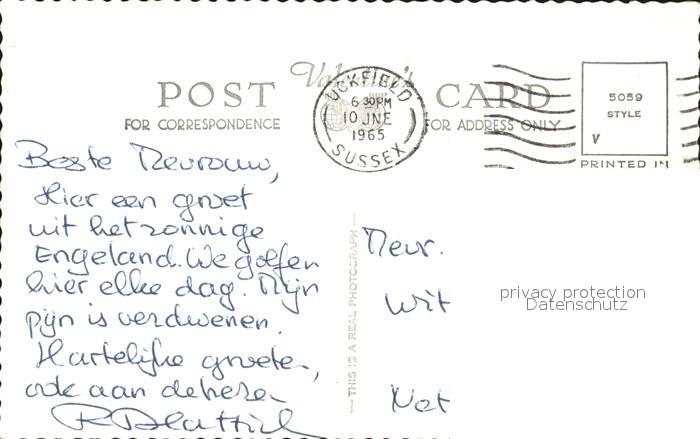 Valentine's
POST CARD
FOR CORRESPONDENCE
FOR ADDRESS ONLY
UCKFIELD
6 30PM
10 JNE
1965
SUSSEX
5059
STYLE
V
PRINTED IN
Beste Mevrouw,
Hier een groet
uit het zonnige
Engeland. We golfen
hier elke dag. Mijn
pijn is verdwenen.
Hartelijke groeten,
ook aan de heren
THIS IS A REAL PHOTOGRAPH
Mevr.
Wit
Net
privacy protection
Datenschutz